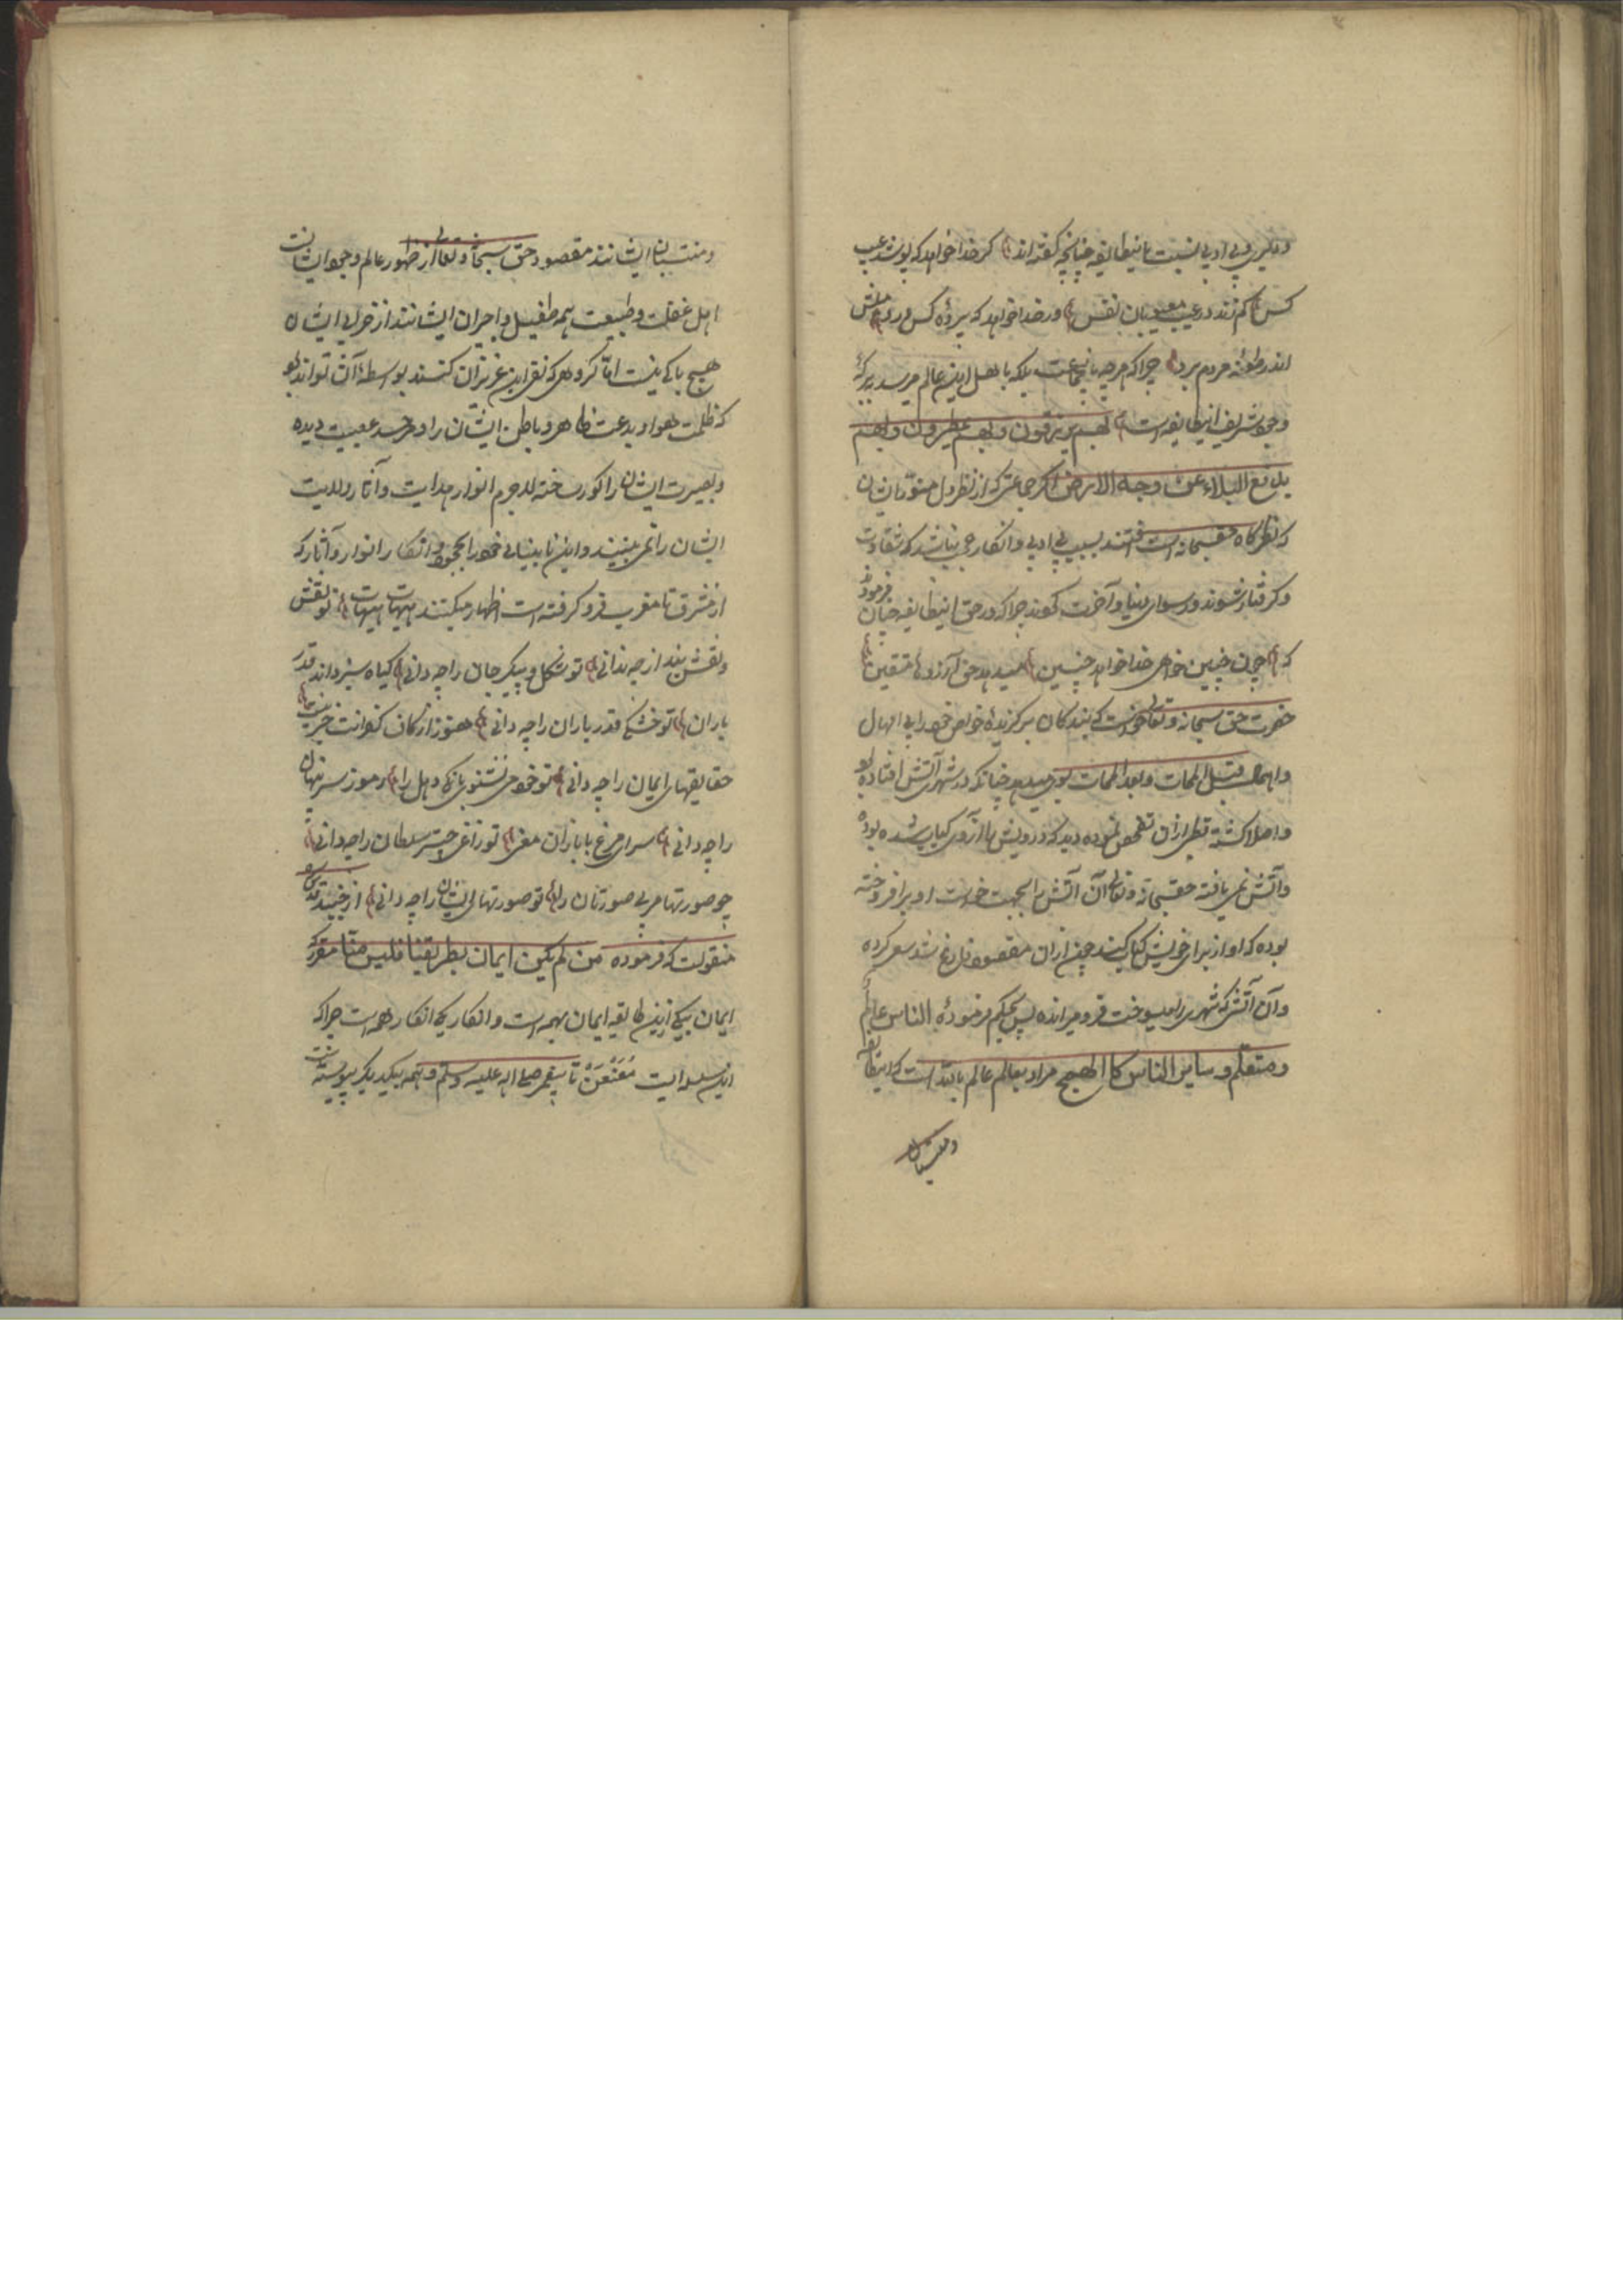 و دلیری و بی ادبی نسبت باینطایفه چنانچه گفته اند گر خدا خواهد که پوشد عیب
کس کم زند در عیب معیوبان نفس ور خدا خواهد که پرده کس درد میلش
اندر طعنه مردم برد چرا که هر چه باینجماعت بلکه باهل این عالم میرسد ببرکة
وجود شریف اینطایفه است بهم یرزقون و بهم یمطرون و بهم
یدفع البلاء عن وجه الارض اگر جماعتی که از نظر دل منور ایشان
که نظرگاه حقسبحانه است افتند بسبب بی ادبی و انکار عجب نباشد که بشقاوت
گرفتار شوند و رسوای دنیا و آخرت گردند چرا که در حق اینطایفه چنان فرموده
که چون چنین خواهی خدا خواهد چنین میدهد حق آرزوی متقین
حضرت حق سبحانه و تعالی بندگان برگزیده خواص خود را بی اهمال
و امهال قبل الممات و بعد الممات می دهد چنانکه در شهری آتش افتاده بود
و اصلا کشته نمی تفحص نموده دید که درویش را آرزوی کباب شده بوده
و آتش نمی یافته حقسبحانه و تعالی آن آتش را بجهت خواست او برافروخته
بوده که او از برای خویش کباب کند چون از آن مقصود فارغ شد سعی کرده
و آن آتش که شهری را میسوخت فرو میرانده پس بحکم فرموده الناس عالم
و متعلم و سایر الناس کالهمج مراد بعالم عالم بالله است که اینطایفه
و منتسبان
و منتسبان ایشانند مقصود حق سبحانه و تعالی از ظهور عالم وجود ایشانست
اهل غفلت و طبیعت همه طفیل و اجران ایشانند از خرابی ایشان
هیچ باکی نیست اما گروهی که نفی این عزیزان کنند بواسطه آن تواند بود
که ظلمت هوا و بدعت ظاهر و باطن ایشان را و حسد عصبیت دیده
و بصیرت ایشان را کور ساخته لاجرم انوار هدایت و آثار ولایت
ایشان را نمی بینند و این نابینایی خود را بجحود و انکار انوار و آثار که
از مشرق تا مغرب فرو گرفته است اظهار میکنند هیهات هیهات تو نقش
و نقش بند از چه ندانی تو شکل و پیکر جان را چه دانی گیاه سبز داند قدر
باران تو خشکی قدر باران را چه دانی هنوز از کاف کفرت خبر نیست
حقایقهای ایمان را چه دانی تو خود می نشنوی بانگ دهل را رموز سر پنهان
را چه دانی سرای مرغ با بازان مغی تو زاغی چتر سلطان را چه دانی
چو صورتها مر بی صورتان را تو صورتهای ایشان را چه دانی از جنید قدس سره
منقولست که فرموده من لم یکن ایمان بطریقنا فلیس منا مقرر که
ایمان بیکی ازین طایفه ایمان بهمه است و انکار یکی انکار همه است چرا که
این سلسله ایست معنعن تا پیغمبر صلی الله علیه و سلم و همه بیکدیگر پیوسته است